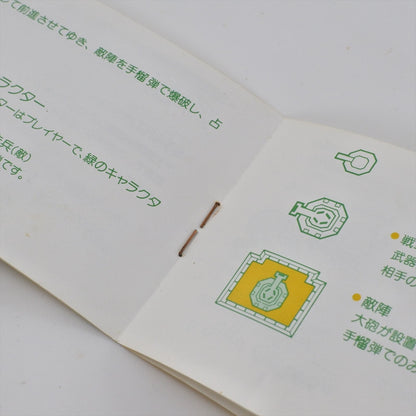 て前進させてゆき、敵陣を手榴弾で爆破し、占
ラクター
ターはプレイヤーで、緑のキャラクタ
兵(敵)
です。
武器
相手の
敵陣
大砲が設置
手榴弾でのみ